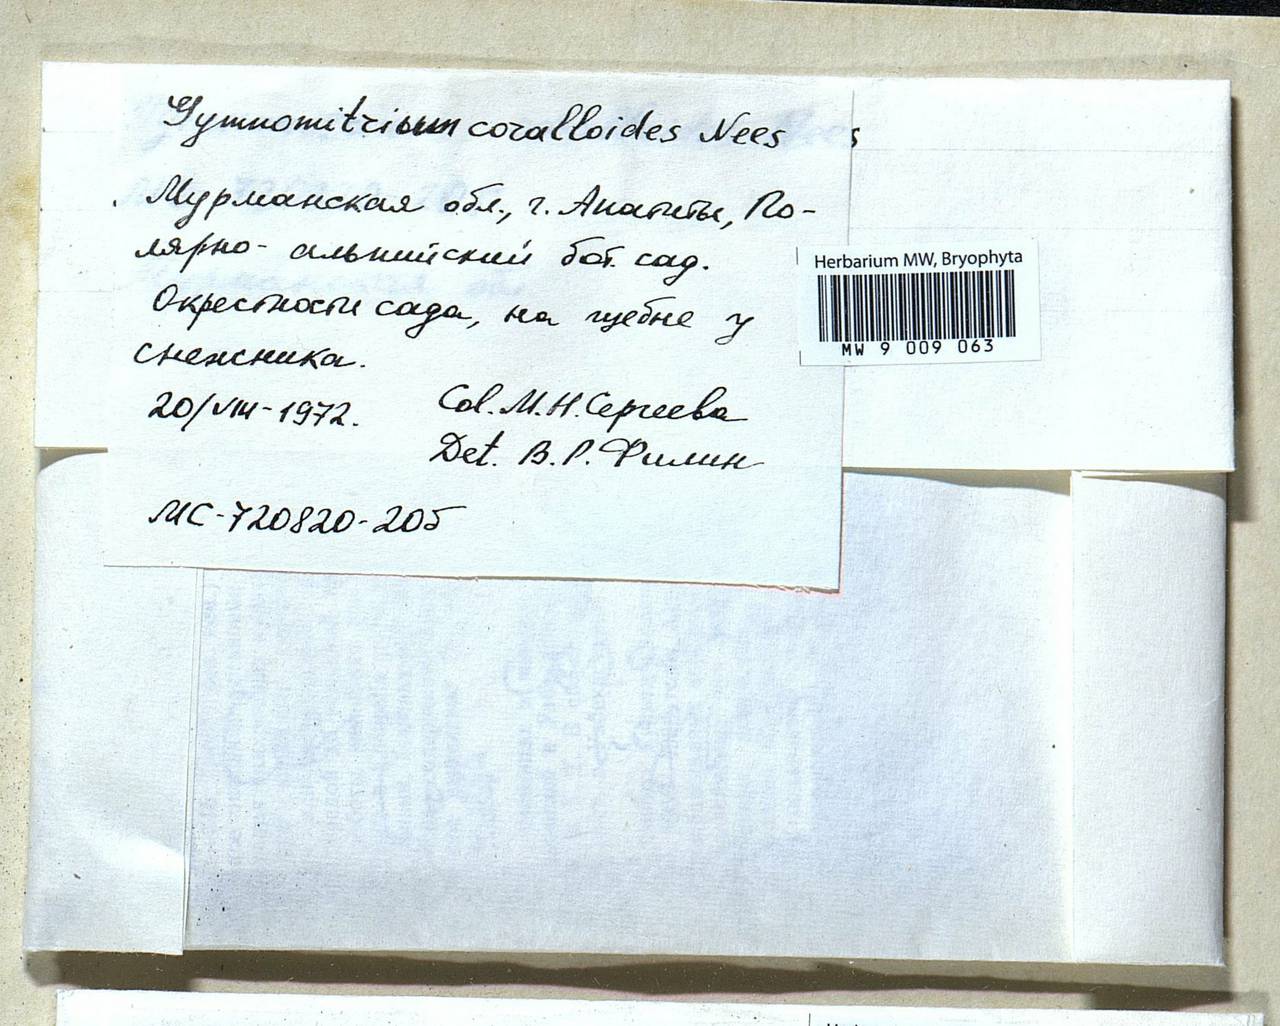 Gymnomitrium coralloides Nees
Мурманская обл., г. Апатиты, По-
лярно-альпийский бот. сад.
Окрестности сада, на щебне у
снежника.
20/VIII-1972.
Col. М.Н.Сергеева
Det. В.Р. Филин
МС-720820-205
Herbarium MW, Bryophyta
MW 9 009 063